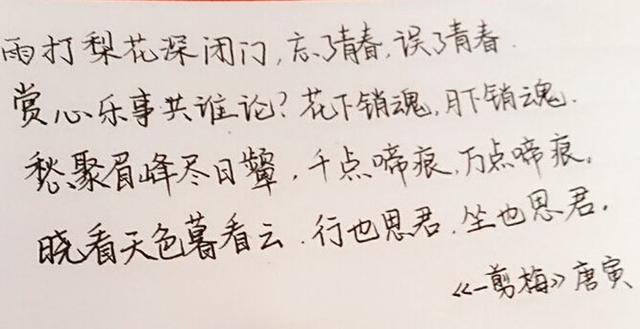 雨打梨花深闭门,忘了青春,误了青春.
赏心乐事共谁论?花下销魂,月下销魂.
愁聚眉峰尽日颦,千点啼痕,万点啼痕。
晓看天色暮看云.行也思君.坐也思君.
《一剪梅》唐寅